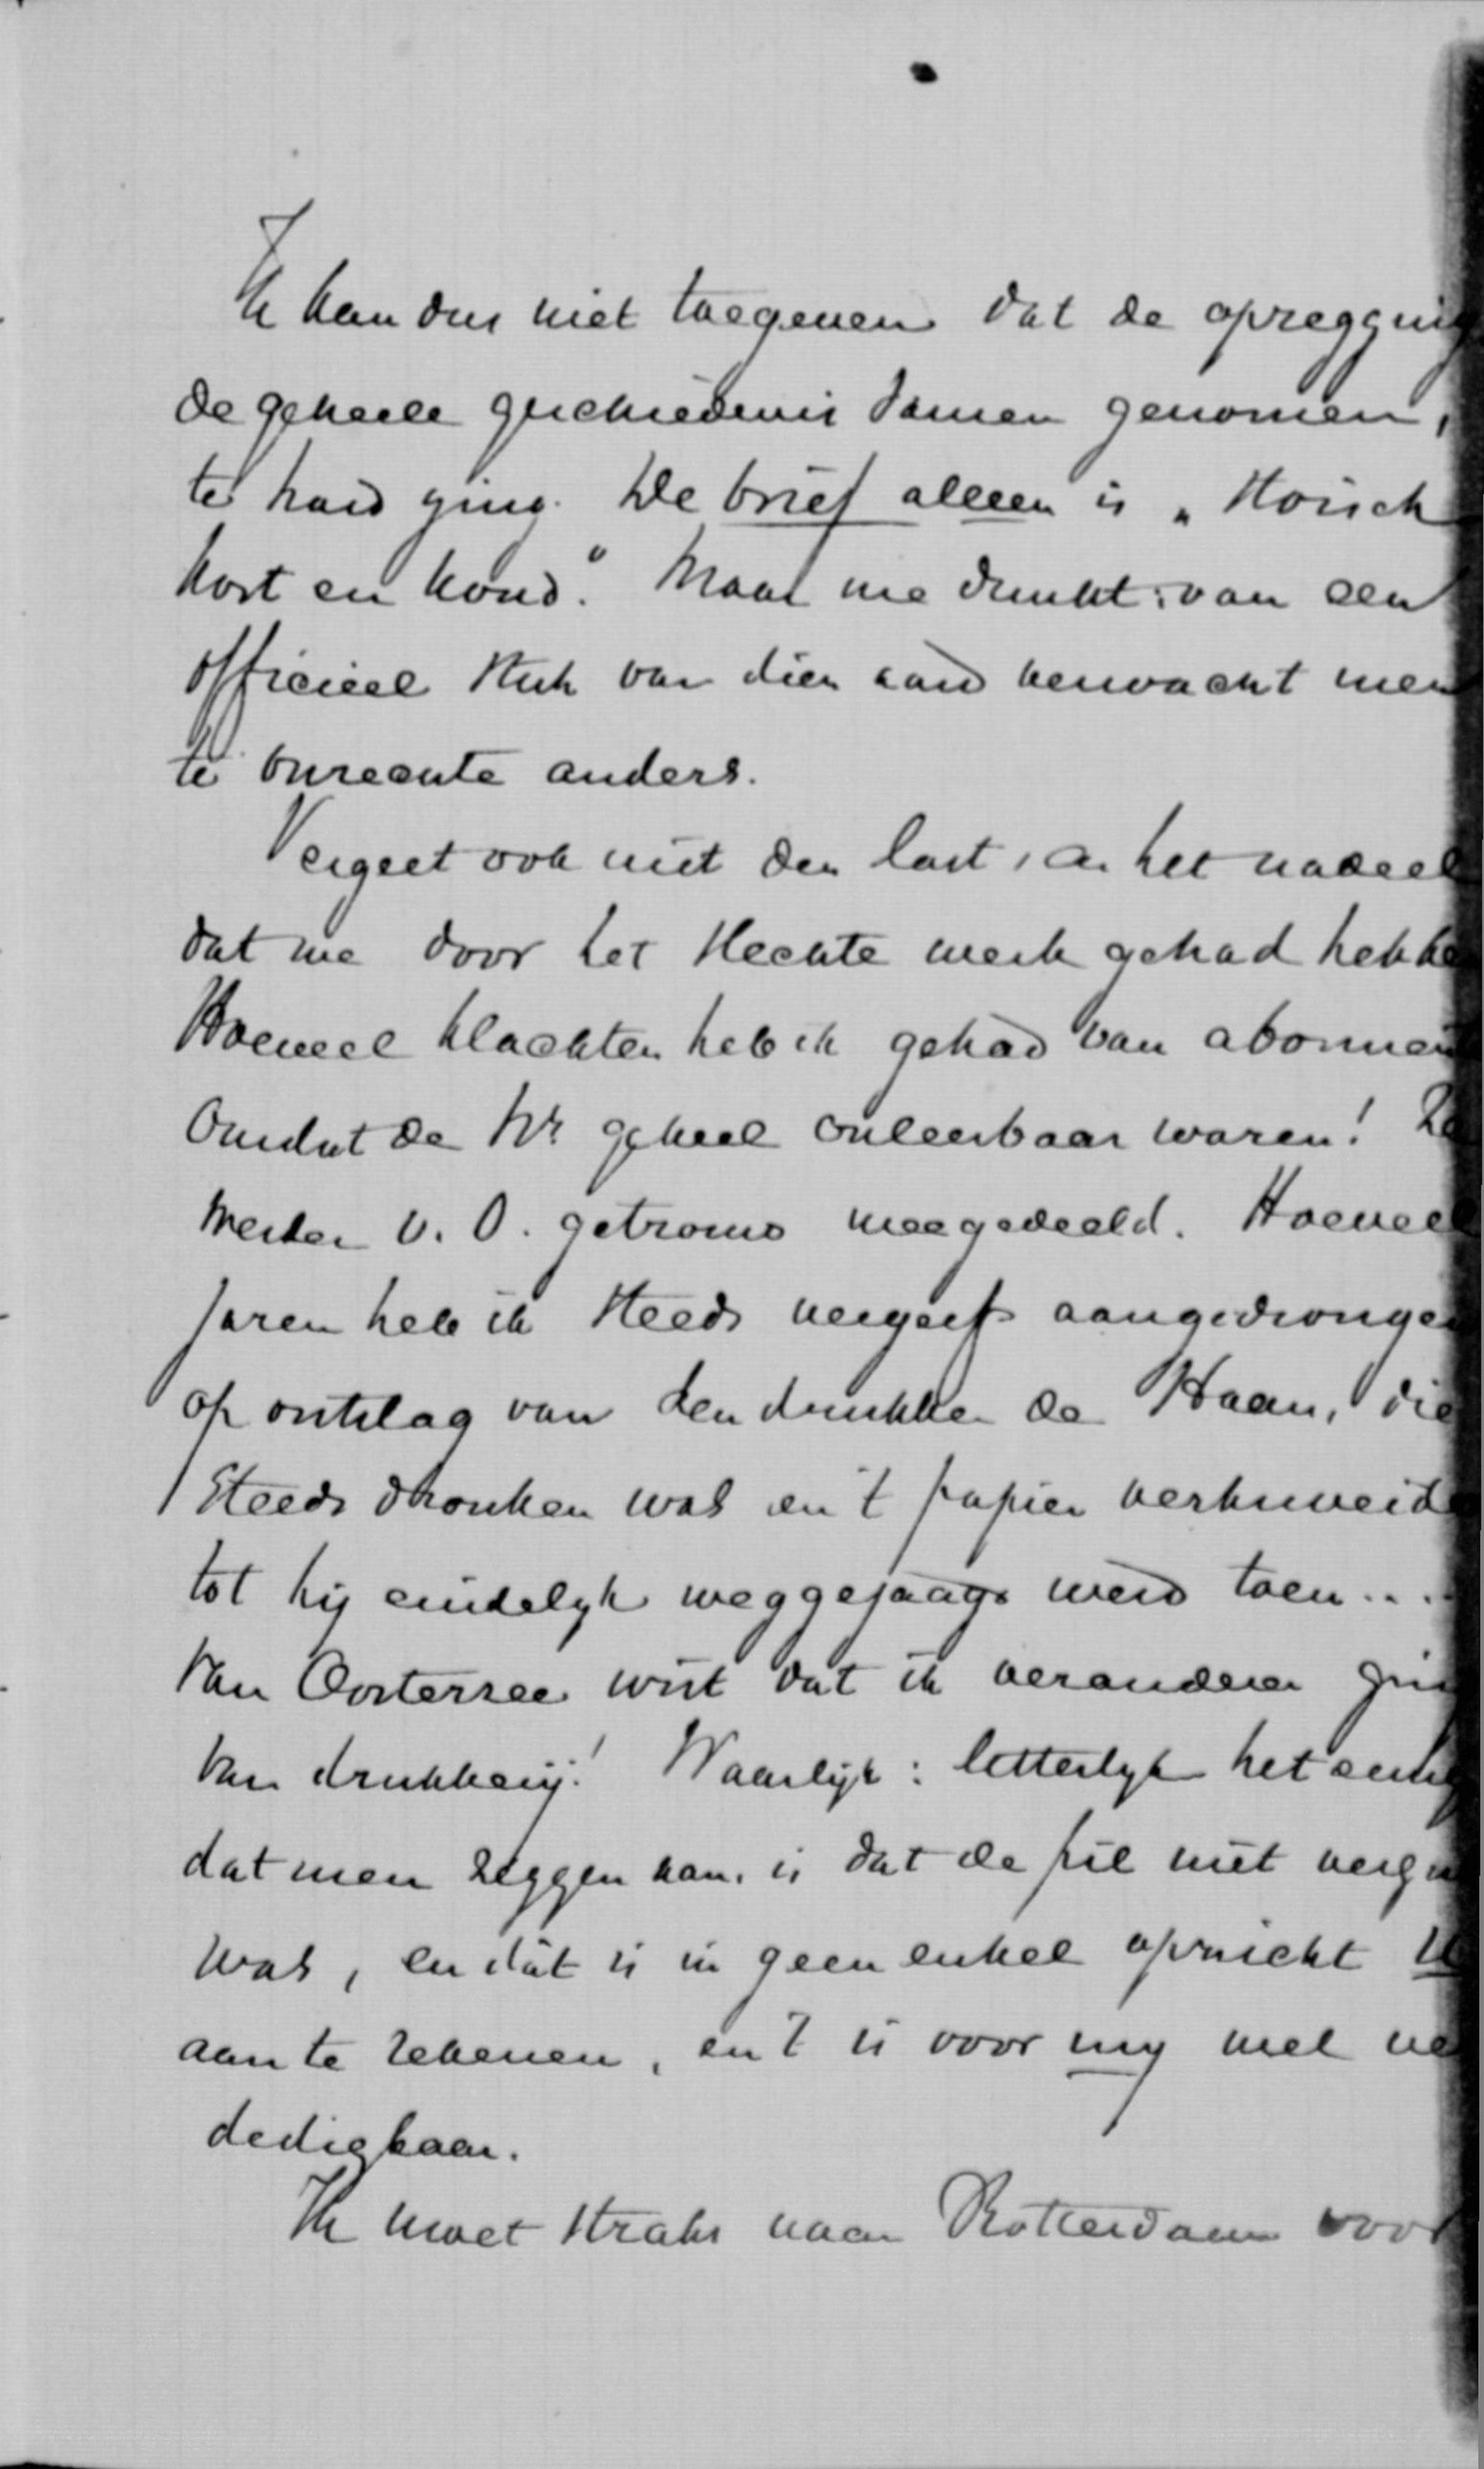 Ik kan dus niet toegeven dat de opzegging
de geheele geschiedenis samen genomen,
te hard ging. De brief alleen is "Stoisch
kort en koud." Maar me dunkt: van een
officieel stuk van dien aard verwacht men
te onrechte anders.
Vergeet ook niet den last, en het nadeel
dat we door het slechte werk gehad hebbe
Hoeveel klachten heb ik gehad van abonnent
Omdat de Nrs geheel onleesbaar waren!
werden v. O. getrouw meegedeeld. Hoeveel
jaren heb ik steeds vergeefs aangedrongen
op ontslag van den drukker de Haan, die
steeds dronken was en 't papier verknoeide
tot hij eindelyk weggejaagd werd toen....
Van Oosterzee wist dat ik veranderen ging
van drukkerij! Waarlijk: letterlyk het eenig
dat men zeggen kan, is dat de pil niet verg
was, en dát is in geen enkel opzicht U
aan te rekenen, en 't is voor my wel ve
dedigbaar.
Ik moet straks naar Rotterdam voor